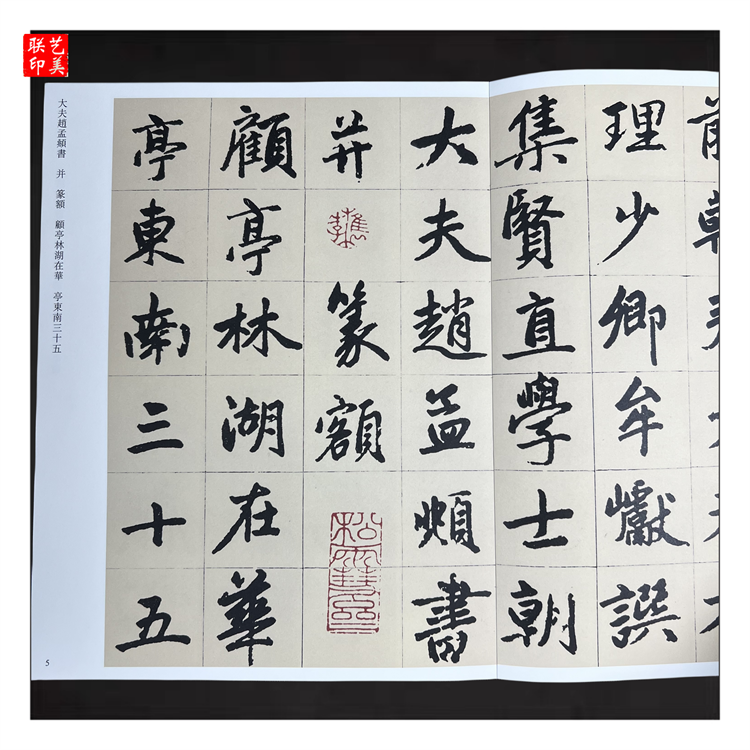 艺美
联印
理少卿牟巘撰
集賢直學士朝
大夫趙孟頫書
并篆額
顧亭林湖在華
亭東南三十五
大夫趙孟頫書 并 篆額 顧亭林湖在華 亭東南三十五
5